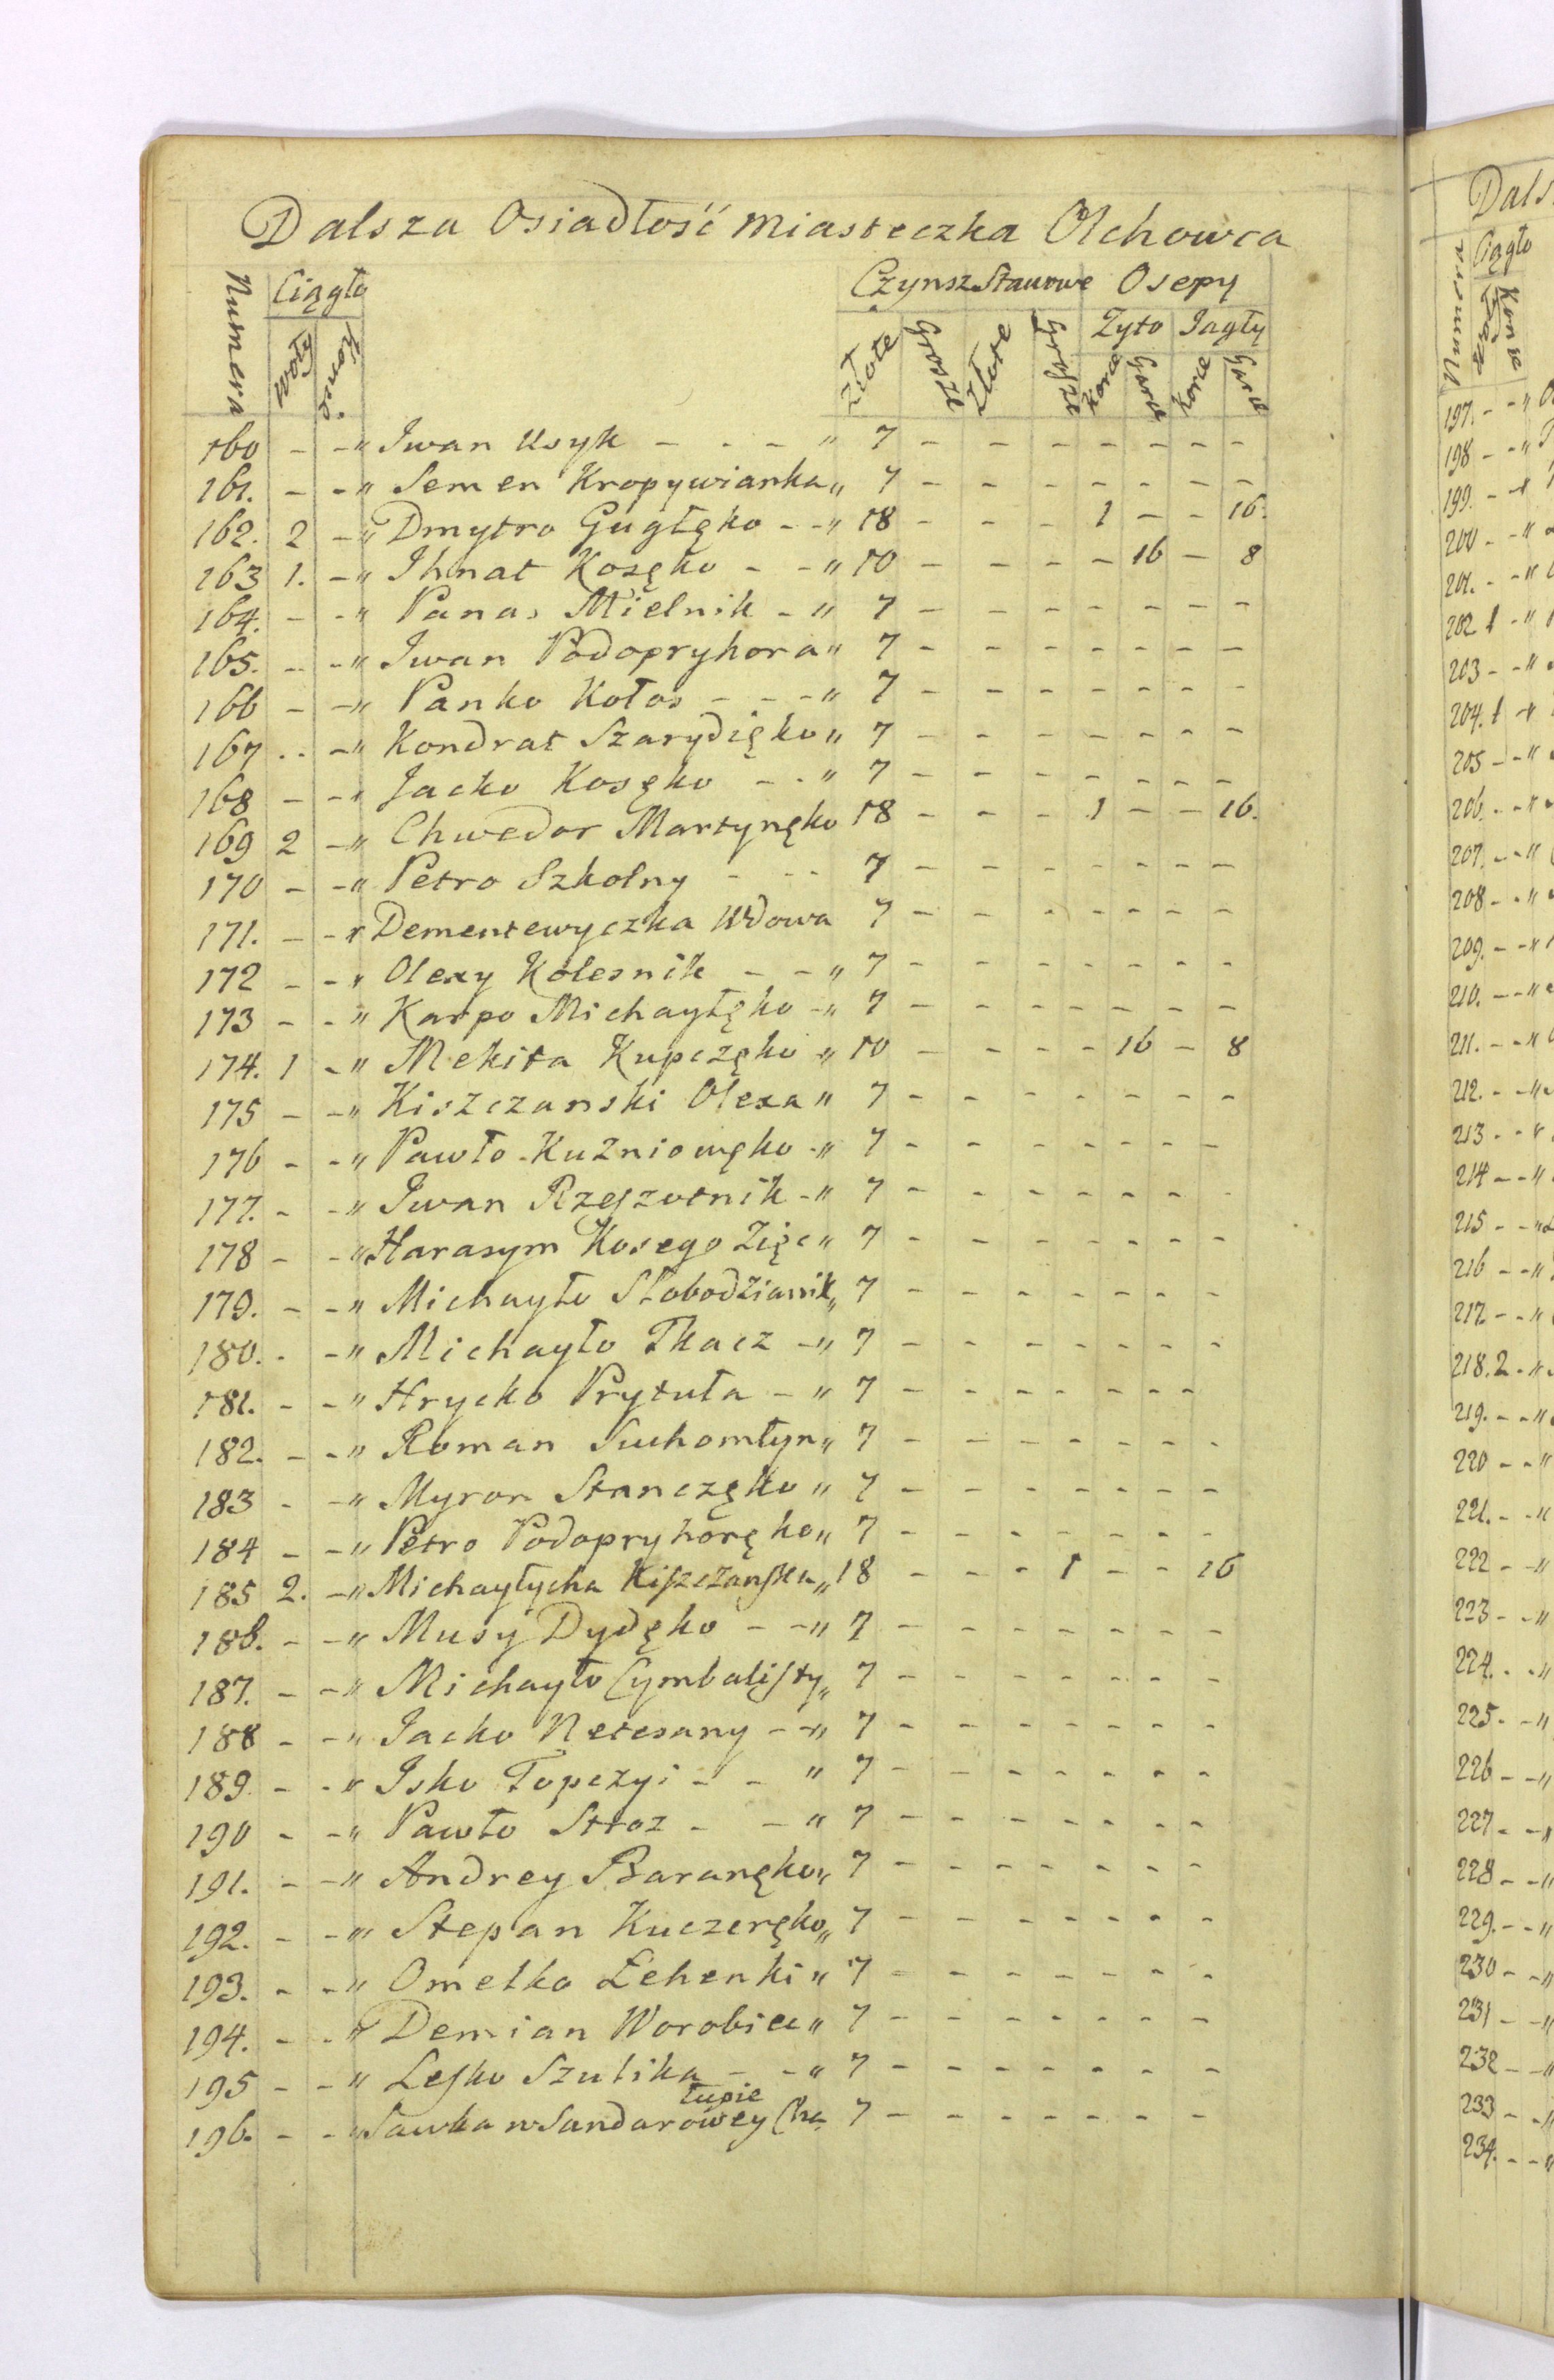 Dalsza Osiadłość Miasteczka Olchowca
Numera Ciągło Czynsz Stawowe Osepy
Woły Konie Złote Grosze Złote Grosze Zyto Jagły
Korce Garce Korce Garce
160 - - " Iwan Usyk - - - " 7 - - - - - - -
161. - - " Semen Kropywianka " 7 - - - - - - -
162. 2 - " Dmytro Gugłęko - - " 18 - - - 1 - - 16.
163 1. - " Ihnat Kosęko - - " 10 - - - - 16 - 8
164. - - " Panas Mielnik - " 7 - - - - - - -
165. - - " Iwan Podopryhora " 7 - - - - - - -
166 - - " Panko Kołos - - - " 7 - - - - - - -
167 - - " Kondrat Szarydięko " 7 - - - - - - -
168 - - " Jacko Kosęko - - " 7 - - - - - - -
169 2 - " Chwedor Martynęko 18 - - - 1 - - 16.
170 - - " Petro Szkolny - - - 7 - - - - - - -
171. - - " Dementewyczka Wdowa 7 - - - - - - -
172 - - " Olexy Kolesnik - - " 7 - - - - - - -
173 - - " Karpo Michayłęko - " 7 - - - - - - -
174. 1 - " Mekita Kupczęko " 10 - - - - 16 - 8
175 - - " Kiszczanski Olexa " 7 - - - - - - -
176 - - " Pawło Kuźniowęko - " 7 - - - - - - -
177. - - " Iwan Rzeszotnik - " 7 - - - - - - -
178 - - " Harasym Kosego Zięc " 7 - - - - - - -
179. - - " Michayło Słobodzianik " 7 - - - - - - -
180. - - " Michayło Tkacz - " 7 - - - - - - -
181. - - " Hrycko Prytuła - " 7 - - - - - - -
182. - - " Roman Suchomłyn " 7 - - - - - - -
183 - - " Myron Stanczęko " 7 - - - - - - -
184 - - " Petro Podopryhoręko " 7 - - - - - - -
185 2. - " Michayłycha Kiszczanska " 18 - - - 1 - - 16
186. - - " Musy Dydęko - - " 7 - - - - - - -
187. - - " Michayło Cymbalisty " 7 - - - - - - -
188 - - " Jacko Netesany - " 7 - - - - - - -
189. - - " Isko Topczyi - - " 7 - - - - - - -
190 - - " Pawło Stroz - - " 7 - - - - - - -
191. - - " Andrey Baranęko " 7 - - - - - - -
192. - - " Stepan Kuczeręko " 7 - - - - - - -
193. - - " Omelko Łehenki " 7 - - - - - - -
194. - - " Demian Worobiec " 7 - - - - - - -
195 - - " Lesko Szulika - - " 7 - - - - - - -
196. - - " Sawka w Sandarowey Chałupie 7 - - - - - - -
Dals
Numera Ciągło
Konie
197. - - "
198 - - "
199. - - "
200 - - "
201. - - "
202 1 - "
203 - - "
204. 1 - "
205 - - "
206. - - "
207. - - "
208 - - "
209. - - "
210. - - "
211. - - "
212. - - "
213 - - "
214 - - "
215 - - "
216 - - "
217. - - "
218. 2 - "
219. - - "
220 - - "
221. - - "
222 - - "
223 - - "
224. - - "
225 - - "
226 - - "
227 - - "
228 - - "
229. - - "
230 - - "
231 - - "
232 - - "
233 - - "
234. - - "